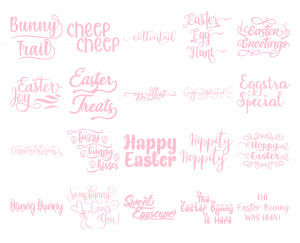 Bunny
Trail
cheep
cheep
cottontail
Easter
Egg
Hunt
Easter
Greetings
Easter
Joy
Easter
Treats
egg hunt
Eggstra
Special
bunny
kisses
Happy
Easter
Hippity
Hoppity
Hoppy
Easter
Bunny Bunny
Some Bunny
Loves
You!
Sweet
Eggscape
The
Easter Bunny
is Here
THE
Easter Bunny
WAS HERE!